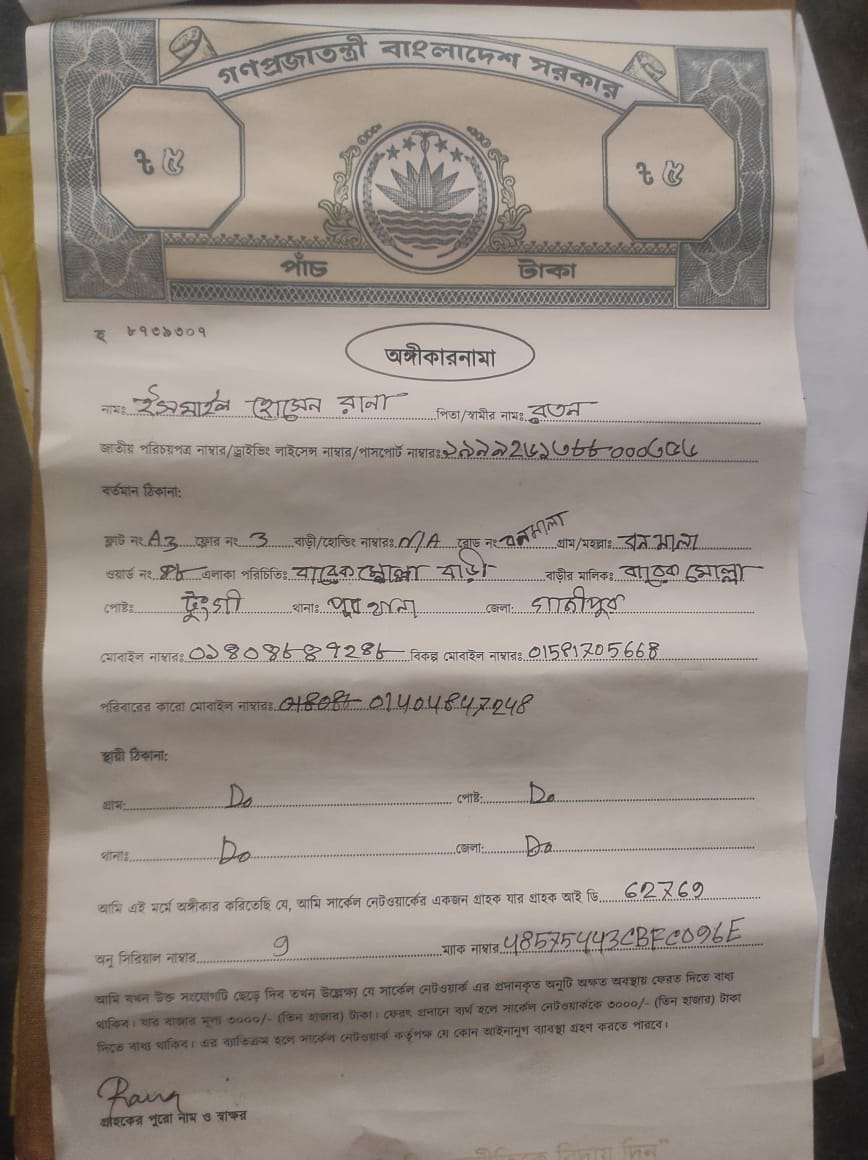 গণপ্রজাতন্ত্রী বাংলাদেশ সরকার
৳ ৫ ৳ ৫
পাঁচ টাকা
হ ৮৭৩৯৩০৭
অঙ্গীকারনামা
নামঃ ইসমাইল হোসেন রানা পিতা/স্বামীর নামঃ রতন
জাতীয় পরিচয়পত্র নাম্বার/ড্রাইভিং লাইসেন্স নাম্বার/পাসপোর্ট নাম্বারঃ
বর্তমান ঠিকানা:
ফ্লাট নং A3 ফ্লোর নং 3 বাড়ী/হোল্ডিং নাম্বারঃ N/A রোড নং বনমালা গ্রাম/মহল্লাঃ বনমালা
ওয়ার্ড নং এলাকা পরিচিতিঃ বারেক মোল্লা বাড়ী বাড়ীর মালিকঃ বারেক মোল্লা
পোষ্টঃ টুংগী থানাঃ পূর্ব থানা জেলা: গাজীপুর
মোবাইল নাম্বারঃ বিকল্প মোবাইল নাম্বারঃ 01581705668
পরিবারের কারো মোবাইল নাম্বারঃ 01404847248
স্থায়ী ঠিকানা:
গ্রাম: Do পোষ্ট: Do
থানাঃ Do জেলা: Do
আমি এই মর্মে অঙ্গীকার করিতেছি যে, আমি সার্কেল নেটওয়ার্কের একজন গ্রাহক যার গ্রাহক আই ডি 62769
অনু সিরিয়াল নাম্বার 9 ম্যাক নাম্বার 48575443CBFC096E
আমি যখন উক্ত সংযোগটি ছেড়ে দিব তখন উল্লেক্ষ্য যে সার্কেল নেটওয়ার্ক এর প্রদানকৃত অনুটি অক্ষত অবস্থায় ফেরত দিতে বাধ্য
থাকিব। যার বাজার মূল্য ৩০০০/- (তিন হাজার) টাকা। ফেরৎ প্রদানে ব্যর্থ হলে সার্কেল নেটওয়ার্ককে ৩০০০/- (তিন হাজার) টাকা
দিতে বাধ্য থাকিব। এর ব্যতিক্রম হলে সার্কেল নেটওয়ার্ক কর্তৃপক্ষ যে কোন আইনানুগ ব্যবস্থা গ্রহণ করতে পারবে।
Rana
গ্রাহকের পুরো নাম ও স্বাক্ষর
বিদায় দিন"